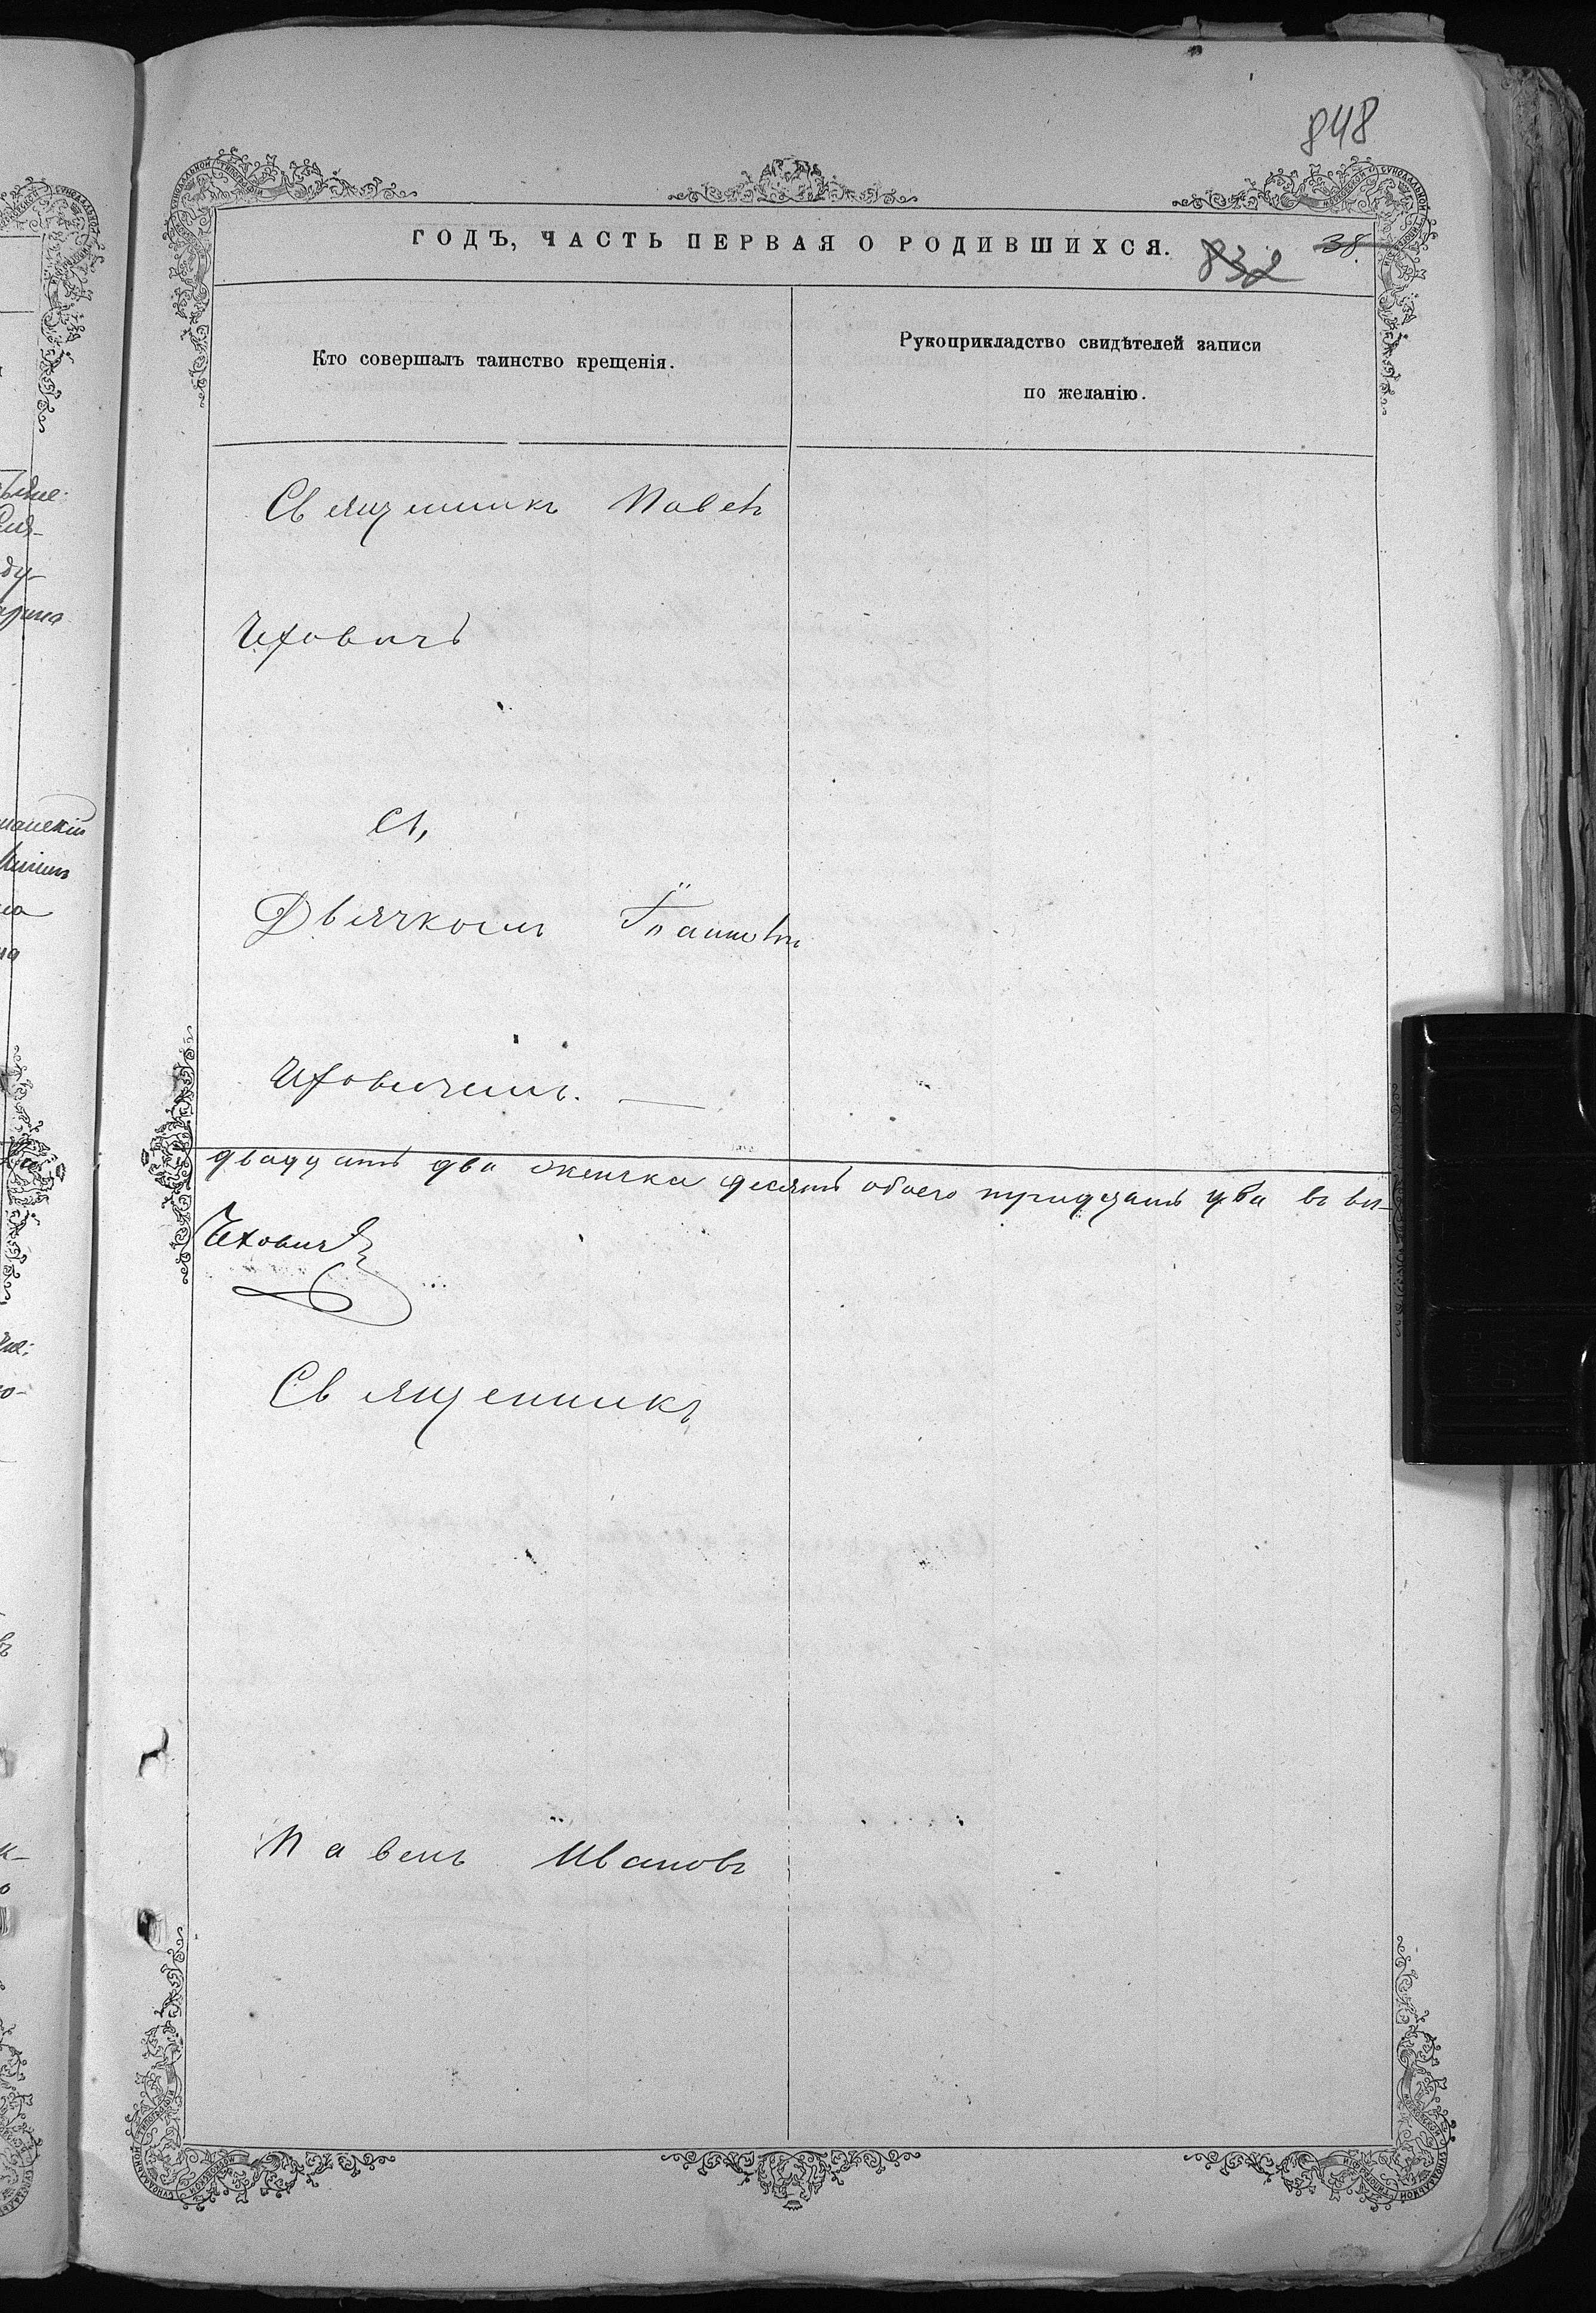 848
ГОДЪ, ЧАСТЬ ПЕРВАЯ О РОДИВШИХСЯ.
832
38.
Кто совершалъ таинство крещенія.
Рукоприкладство свидѣтелей записи
по желанію.
Священникъ Павелъ
Чеховичъ
съ
Дьячкомъ
Чеховичемъ.
двадцать два женска десять обоего тридцать два въ
Чеховичъ
Священникъ
Павелъ Ивановъ